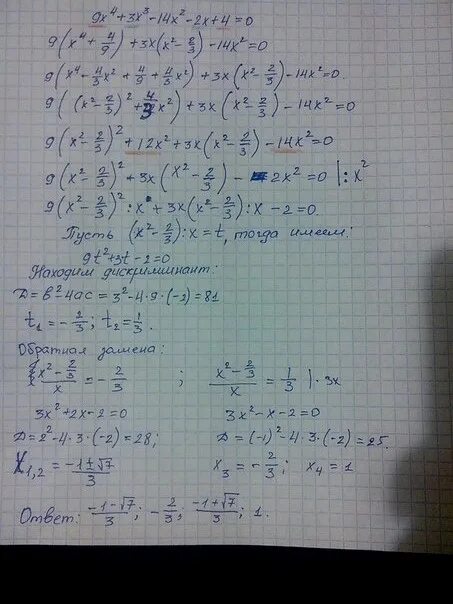 9x⁴+3x³-14x²-2x+4=0
9(x⁴+4/9)+3x(x²-2/3)-14x²=0
9(x⁴-4/3x²+4/9+4/3x²)+3x(x²-2/3)-14x²=0.
9((x²-2/3)²+4/3x²)+3x(x²-2/3)-14x²=0
9(x²-2/3)²+12x²+3x(x²-2/3)-14x²=0
9(x²-2/3)²+3x(x²-2/3)-2x²=0 |:x²
9(x²-2/3)²:x²+3x(x²-2/3):x-2=0.
Пусть (x²-2/3):x=t, тогда имеем:
9t²+3t-2=0
Находим дискриминант:
D=b²-4ac=3²-4·9·(-2)=81
t₁=-2/3; t₂=1/3.
Обратная замена:
(x²-2/3)/x=-2/3 ; (x²-2/3)/x=1/3 |·3x
3x²+2x-2=0 3x²-x-2=0
D=2²-4·3·(-2)=28; D=(-1)²-4·3·(-2)=25.
x₁,₂=(-1±√7)/3 x₃=-2/3; x₄=1
Ответ: (-1-√7)/3; -2/3; (-1+√7)/3; 1.